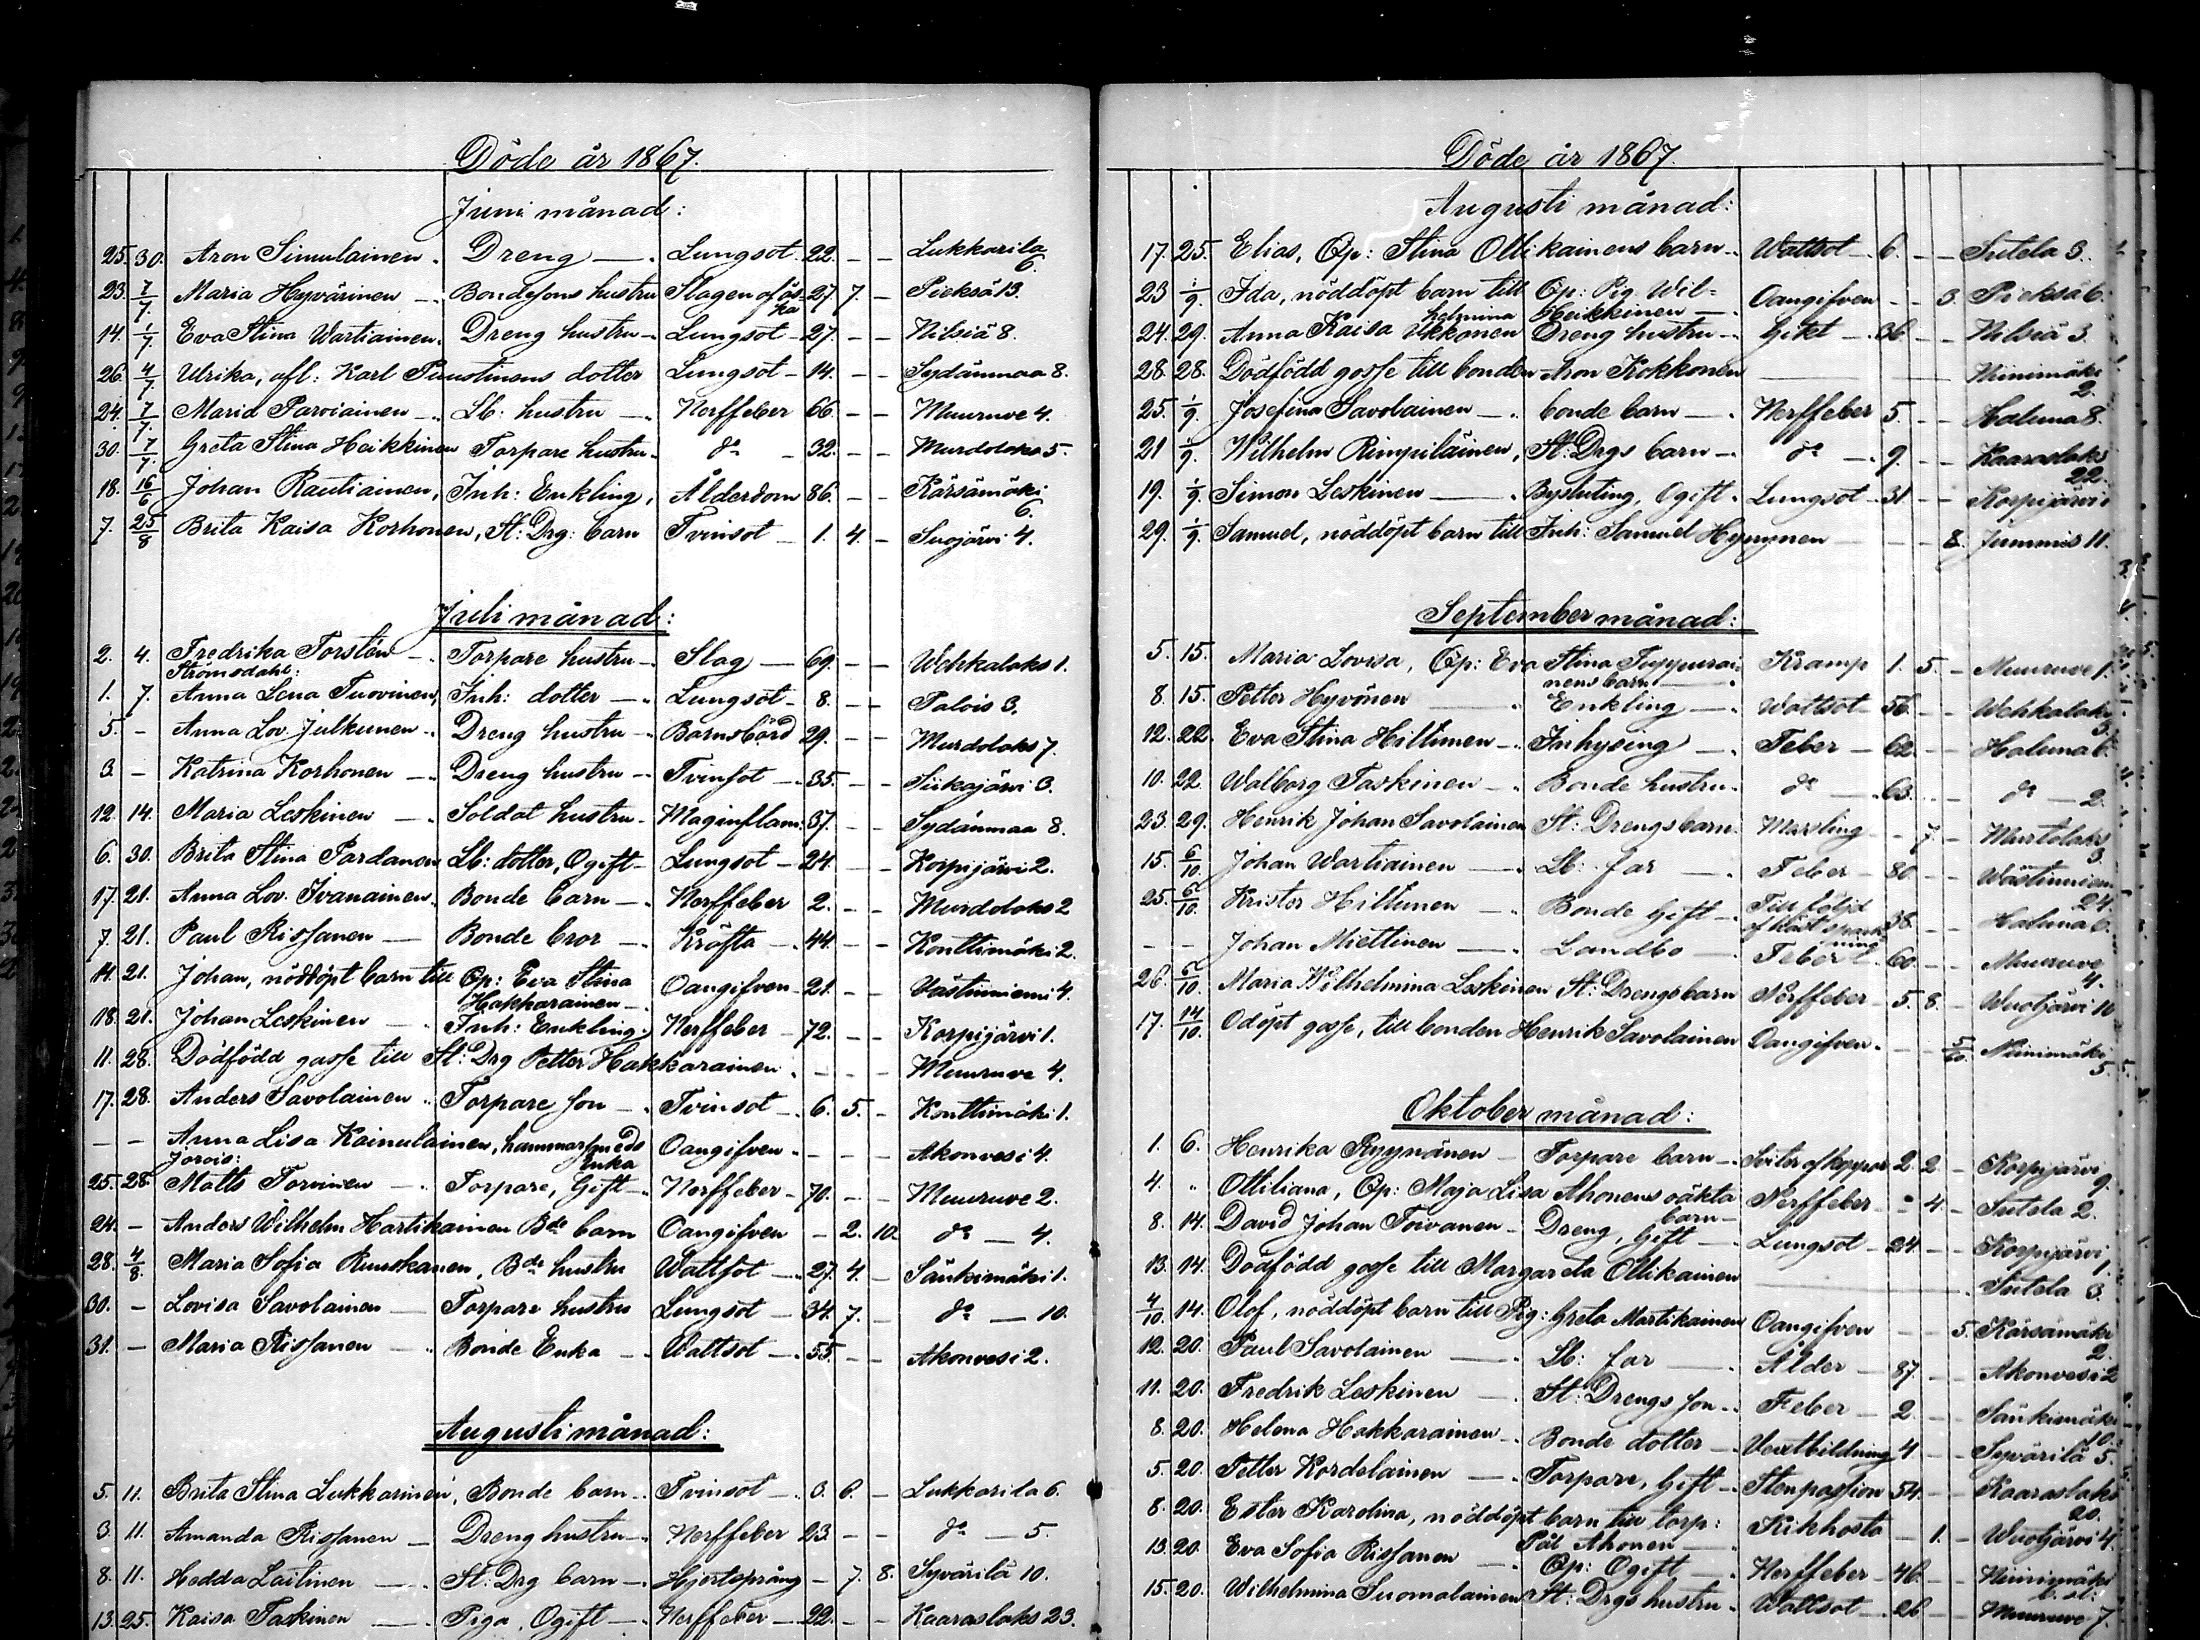 Döde år 1867.
Juni månad:
25. 30. Aron Simulainen. Dreng Lungsot 22. - - Lukkarila 6.
23. 7/7. Maria Hyvärinen Bondesons hustru Slagen af ås-ka 27. 7. - Pieksä 13.
14. 1/7 Eva Stina Wartiainen. Dreng hustru Lungsot 27. - - Nilsiä 8.
26. 4/7 Ulrika, afl: Karl Puustinens dotter Lungsot 14. - - Sydänmaa 8.
24. 7/7 Maria Parviainen Lb: hustru Nerffeber 66. - - Muuruve 4.
30. 7/7. Greta Stina Heikkinen Torpare hustru do 32. - - Murdoloks 5.
18. 16/6 Johan Rautiainen, Inh: Enkling, Ålderdom 86. - - Kärsämäki 6.
7. 25/8 Brita Kaisa Korhonen, St: Drg: barn Tvinsot 1. 4. - Suojärvi 4.
Juli månad:
2. 4. Fredrika Torstén Torpare hustru Slag 69. - - Wehkalaks 1.
Strömsdahl:
1. 7. Anna Lena Tuovinen, Inh: dotter Lungsot 8. - - Palois 3.
5. - Anna Lov. Julkunen Dreng hustru Barnsbörd 29. - - Murdoloks 7.
3. - Katrina Korhonen Dreng hustru Tvinsot 35. - - Siikajärvi 3.
12. 14. Maria Leskinen Soldat hustru Maginflam: 37. - - Sydänmaa 8.
6. 30. Brita Stina Pardanen Lb: dotter, Ogift Lungsot 24. - - Korpijärvi 2.
17. 21. Anna Lov. Ivanainen. Bonde barn Nerffeber 2. - - Murdoloks 2
7. 21. Paul Rissanen Bonde bror Kräfta 44. - - Konttimäki 2.
14. 21. Johan, nöddöpt barn till Op: Eva Stina Hakkarainen Oangifven 21. - - Västinniemi 4.
18. 21. Johan Leskinen Inh: Enkling. Nerffeber 72. - - Korpijärvi 1.
11. 28. Dödfödd gosse till St: Drg Petter Hakkarainen. - - - Muuruve 4.
17. 28. Anders Savolainen Torpare son Tvinsot 6. 5. - Konttimäki 1.
- - Anna Lisa Kainulainen, hammarsmeds Enka Oangifven. - - - Akonvesi 4.
Jorois:
25. 28. Matts Torvinen Torpare, Gift Nerffeber 70. - - Muuruve 2.
24. - Anders Wilhelm Hartikainen Bde barn Oangifven - 2. 10. do 4.
28. 4/8. Maria Sofia Ruuskanen, Bde hustru Wattsot 27. 4. - Sänkimäki 1.
30. - Lovisa Savolainen Torpare hustru Lungsot 34. 7. - do 10.
31. - Maria Rissanen Bonde Enka Wattsot 55. - - Akonvesi 2.
Augusti månad:
5. 11. Brita Stina Lukkarinen, Bonde barn Tvinsot 3. 6. - Lukkarila 6.
3. 11. Amanda Rissanen Dreng hustru Nerffeber 23. - - do 5.
8. 11. Hedda Laitinen St: Drg barn Hjertsprång - 7. 8. Syvärilä 10.
13. 25. Kaisa Taskinen Piga, Ogift Nerffeber 22. - - Kaaraslaks 23.
Döde år 1867.
Augusti månad:
17. 25. Elias, Op: Stina Ollikainens barn Wattsot 6. - - Sutela 3.
23 1/9. Ida, nöddöpt barn till Op: Pig. Wil-helmina Heikkinen Oangifven - - 3. Pieksä 6.
24. 29. Anna Kaisa Ukkonen Dreng hustru Gikt 36 - - Nilsiä 3.
28. 28. Dödfödd gosse till bonden Aron Kokkonen Niinimäki 2.
25. 1/9. Josefina Savolainen bonde barn Nerffeber 5. - - Haluna 8.
21 1/9. Wilhelm Rimpiläinen, St: Drgs barn do 9. - - Kaaraslaks 22.
19. 1/9. Simon Leskinen Bysluting, Ogift Lungsot 31 - - Korpijärvi
29. 1/9. Samuel, nöddöpt barn till Inh: Samuel Hyyrynen - - 8. Jumnis 11.
September månad:
5. 15. Maria Lovisa, Op: Eva Stina Toppurai-nens barn Kramp 1. 5. - Muuruve 1.
8. 15. Petter Hyvönen Enkling Wattsot 56. - - Wehkalaks 3.
12. 22. Eva Stina Hiltunen Inhysing Feber 62. - - Haluna 6.
10. 22. Walborg Taskinen Bonde hustru do 63. - - do 2.
23. 29. Henrik Johan Savolainen St: Drengs barn. Messling - 7. - Murtolaks 3.
15. 6/10. Johan Wartiainen Lb: far Feber 80. - - Wästinniem 24.
25. 6/10. Krister Hiltunen Bonde Gift Till följd af häst spark-ning 38. - - Haluna 6.
- - Johan Miettinen Landbo Feber 60. - - Muuruve 4.
26. 6/10. Maria Wilhelmina Leskinen St: Drengs barn Nerffeber 5. 8. - Wuotjärvi 10
17. 14/10. Odöpt gosse, till bonden Henrik Savolainen Oangifven. - - Niinimäki 5.
Oktober månad:
1. 6. Henrika Ryynänen Torpare barn Sviter af koppor 2. 2. - Korpijärvi 9.
4. " Ottiliana, Op: Maja Lisa Ahonens oäkta barn Nerffeber - 4. - Sutela 2.
8. 14. David Johan Toivanen Dreng, Gift Lungsot 24. - - Korpijärvi 1.
13. 14. Dödfödd gosse till Margareta Ollikainen Sutela 3.
4/10 14. Olof, nöddöpt barn till Pig: Greta Martikainen Oangifven - - 5. Kärsämäki 2.
12. 20. Paul Savolainen Lb: far Ålder 87. - - Akonvesi 2
11. 20. Fredrik Leskinen St: Drengs son Feber 2. - - Sänkimäki 10.
8. 20. Helena Hakkarainen Bonde dotter Vextbildning 4 - - Syvärilä 5.
5. 20. Petter Kordelainen Torpare, Gift Stenpassion 54. - - Kaaraslaks 20.
8. 20. Ester Karolina, nöddöpt barn till torp: Pål Ahonen Kikhosta - 1. - Wuotjärvi 4.
13. 20. Eva Sofia Rissanen Op: Ogift Nerffeber 46. - - Niinimäki
15. 20. Wilhelmina Suomalainen St: Drgs hustru Wattsot 26 - - Muuruve 7.